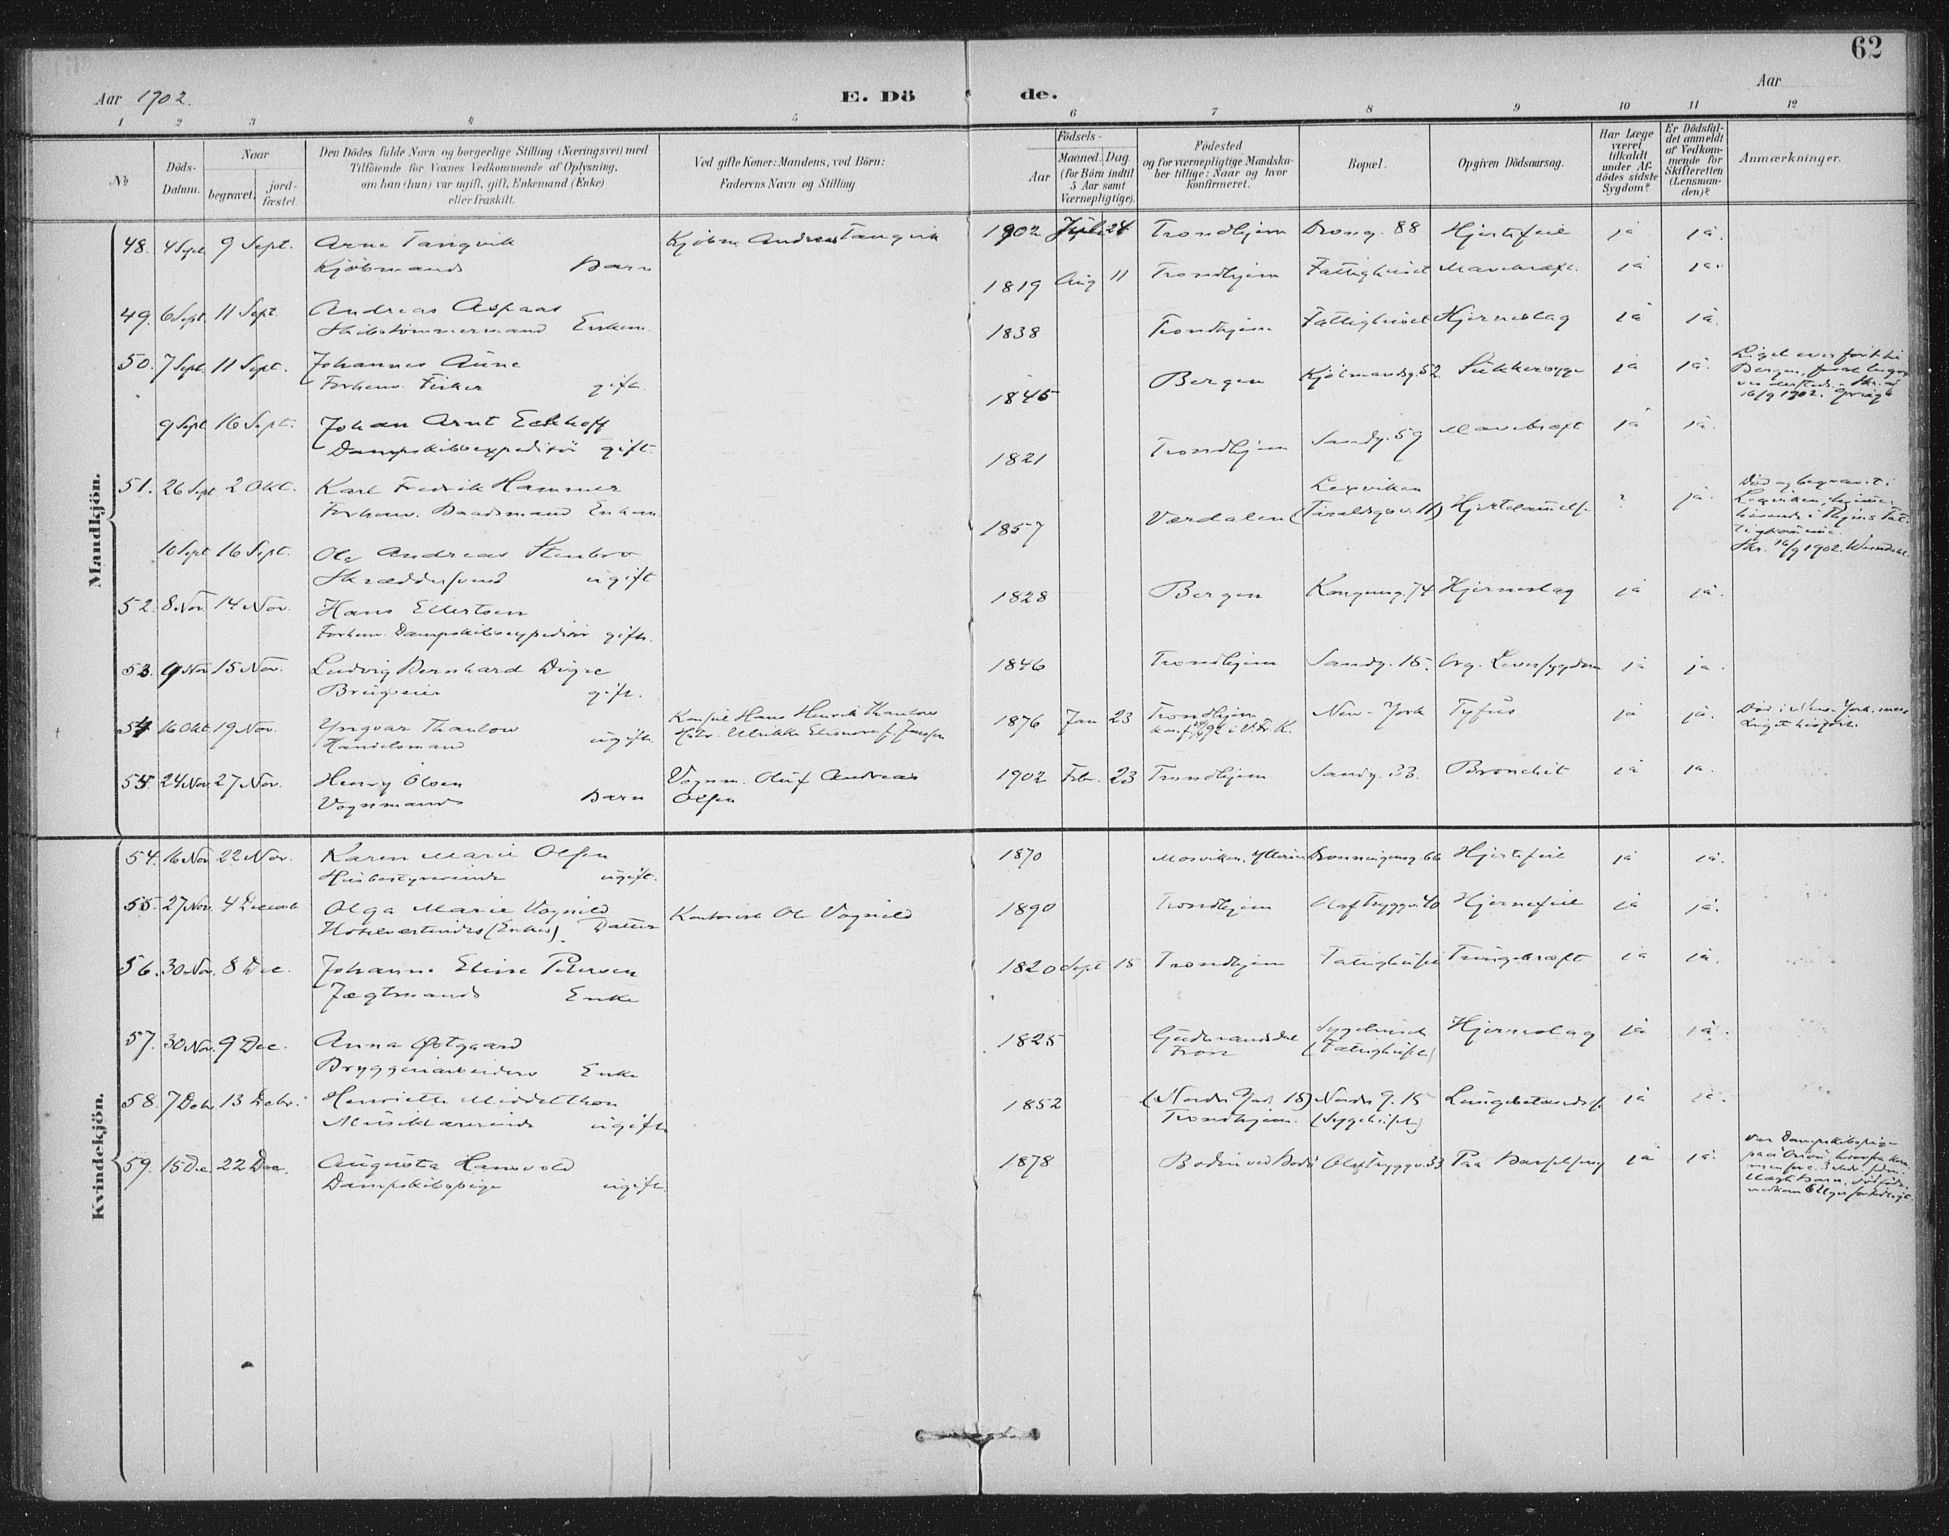 62
Aar 1902.
E. Dö
de.
Aar
1 2 3 4 5 6 7 8 9 10 11 12
No
Döds-
Datum.
Naar
begravet.
jord-
fæstet.
Den Dödes fulde Navn og borgerlige Stilling (Næringsvei) med
Tilföiende for Voxnes Vedkommende af Oplysning,
om han (hun) var ugift, gift, Enkemand (Enke)
eller fraskilt.
Ved gifte Koner: Mandens, ved Börn:
Faderens Navn og Stilling
Födsels-
Aar
Maaned. Dag.
(for Börn indtil
5 Aar samt
Værnepligtige).
Födested
og for værnepligtige Mandska-
ber tillige: Naar og hvor
konfirmeret.
Bopæl.
Opgiven Dödsaarsag.
Har Læge
været
tilkaldt
under Af-
dödes sidste
Sygdom?
Er Dödsfal-
det anmeldt
af Vedkom-
mende for
Skifteretten
(Lensman-
den)?
Anmærkninger.
Mandkjön.
48. 4 Sept. 9 Sept. Arne Tangvik Kjøbm. Andreas Tangvik 1902 Juli 24 Trondhjem Drong. 88 Hjertefeil ja ja.
Kjøbmands Barn
1819 Aug 11 Trondhjem Fattighuset Mavekræft. ja ja.
49. 6 Sept. 11 Sept. Andreas Aspaas
Skibstømmermand Enkem.
1838 Trondhjem Fattighuset Hjerneslag ja ja.
50. 7 Sept. 11 Sept. Johannes Aune
Forhenv. Fisker gift.
1845 Bergen Kjøbmandsg. 52 Sukkersyge ja ja.
Liget overført til
Bergen,
16/9 1902.
9 Sept 16 Sept. Johan Arnt Eckhoff
Dampskibsexpeditör gift.
1821 Trondhjem Sandg. 59 Mavekræft ja ja.
51. 26 Sept 2 Okt. Karl Fredrik Hammer
Forhenv. Baadsmand Enkem.
1857 Værdalen Lexviken
Hjertelammelse ? ja.
Död og begravet i
Lexviken,
Skr. 16/9 1902.
10 Sept 16 Sept. Ole Andreas Stenbro
Skræddersvend ugift
1828 Bergen Kongensg. 74 Hjerneslag ja ja.
52. 8 Nov. 14 Nov. Hans Ellertsen
Forhenv. Dampskibsexpeditör gift.
53. 9 Nov 15 Nov. Ludvig Bernhard Digre 1846 Trondhjem Sandg. 15. Org. Leversygdom ja ja.
Brugseier gift.
54 16 Okt 19 Nov. Yngvar Thaulow Konsul Hans Henrik Thaulow 1876 Jan 23 Trondhjem New-York Tyfus ja ja.
Handelsmand ugift. Hstr. Ulrikke Eleonora f. Jenssen
konf. i V. Fr. K.
Död i New-York, men
Liget hidført.
55. 24 Nov. 27 Nov. Henry Olsen Vognm. Oluf Andreas 1902 Febr. 23 Trondhjem Sandg. 33. Bronchit ja ja.
Vognmands Barn Olsen
Kvindekjön.
54. 16 Nov 22 Nov. Karen Marie Olsen 1870 Mosviken, Ytterøen Dronningensg. 66 Hjertefeil ja ja.
Husbestyrerinde ugift.
55. 27 Nov. 4 Decemb Olga Marie Vognild Kontorist Ole Vognild 1890 Trondhjem Olaf Trygv. 40 Hjernefeil ja ja.
Hotelværtindes (Enkes) Datter
56. 30 Nov. 8 Dec. Johanne Eline Petersen 1820 Sept 15 Trondhjem Fattighuset Tungekræft ja ja.
Jægtmands Enke
57. 30 Nov. 9 Dec. Anna Østgaard 1825 Gudbrandsdal Sygehuset Hjerneslag ja ja.
Fron (Fattighuset)
Bryggeriarbeiders Enke
58. 7 Debr 13 Debr. Henriette Middelthon 1852 (Nordre 15) Nordre g. 15 Lungebetændelse ja ja.
Musiklærerinde ugift. Trondhjem. (Sygehuset)
59. 15 Dec 22 Dec. Augusta Hansvold 1878 Bodin ved Bodö Olaf Trygv. 33 Paa Barselseng ja ja.
Dampskibspige ugift.
Var Dampskibspige
paa Orion,